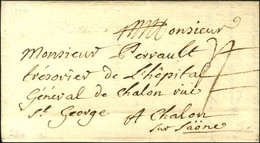 Monsieur
Monsieur Perrault
tresorier de L'hôpital
Général de Chalon rüe
St. George A Chalon
Sur Saône